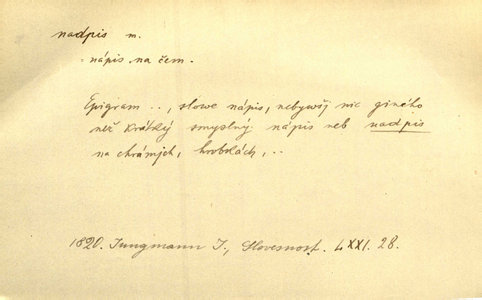 nadpis m.
: nápis na čem.
Epigram .., slowe nápis, nebywšj nic giného
než krátký smyslný nápis neb nadpis
na chrámjch, hrobkách, ..
1820. Jungmann J., Slovesnost. LXXI. 28.